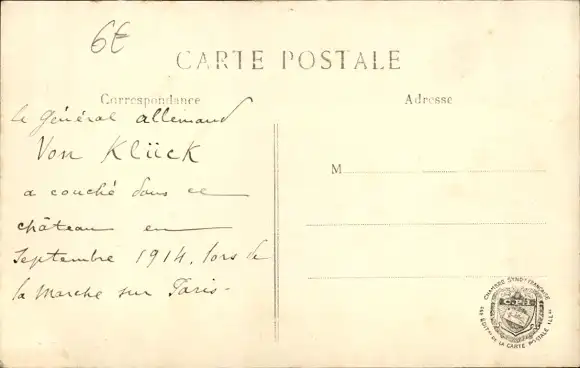 6€
CARTE POSTALE
Correspondance
Adresse
le général allemand
Von Klück
a couché dans ce
château en
Septembre 1914, lors de
la marche sur Paris-
M
CHAMBRE SYNDLE FRANÇAISE
DE LA CARTE POSTALE ILL